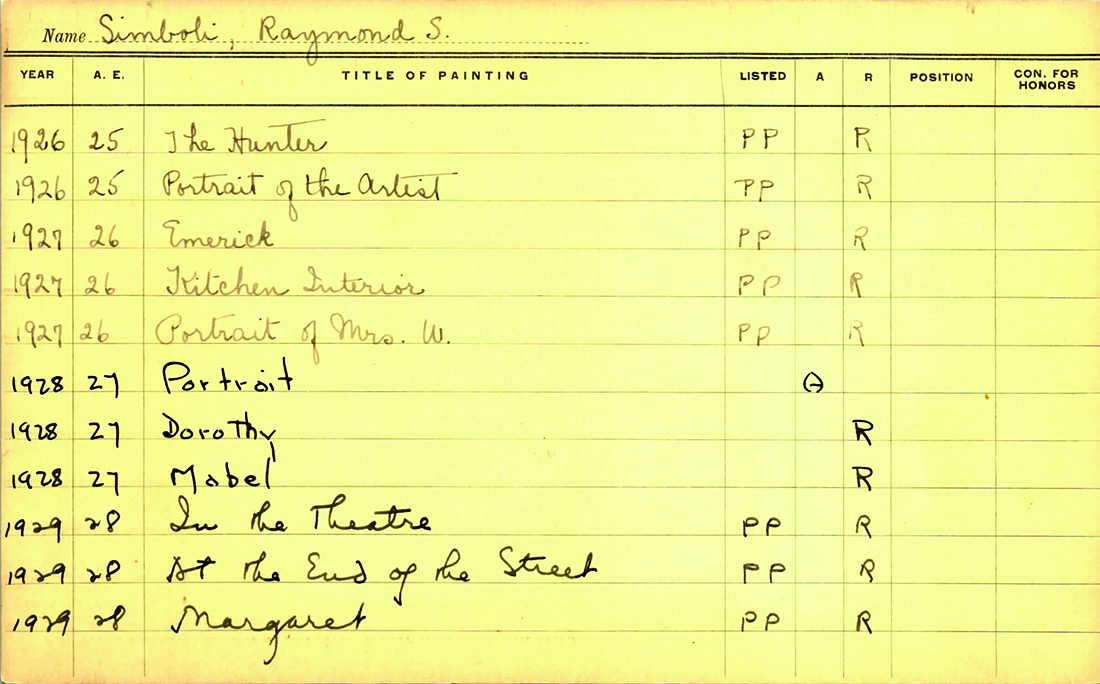 Name Simboli, Raymond S.
YEAR A. E. TITLE OF PAINTING LISTED A R POSITION CON. FOR HONORS
1926 25 The Hunter PP R
1926 25 Portrait of the Artist PP R
1927 26 Emerick PP R
1927 26 Kitchen Interior PP R
1927 26 Portrait of Mrs. W. PP R
1928 27 Portrait A
1928 27 Dorothy R
1928 27 Mabel R
1929 28 In the Theatre PP R
1929 28 At the End of the Street PP R
1929 28 Margaret PP R